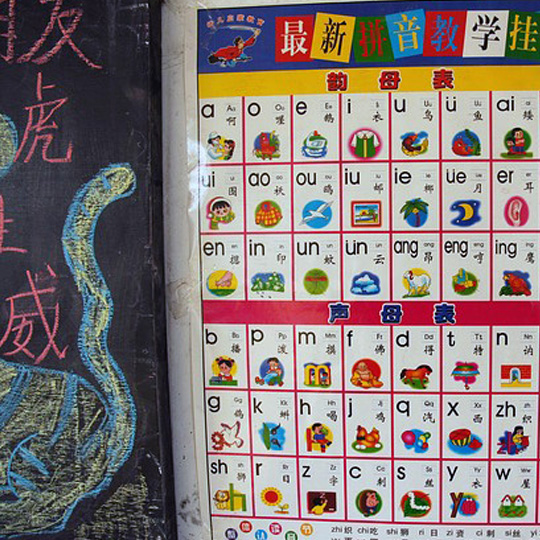 友
虎
威
幼儿启蒙教育
最新拼音教学挂
韵 母 表
a 啊 o 喔 e 鹅 i 衣 u 乌 ü 鱼 ai 矮
ui 围 ao 袄 ou 鸥 iu 邮 ie 椰 üe 月 er 耳
en 摁 in 印 un 蚊 ün 云 ang 昂 eng 哼 ing 鹰
声 母 表
b 播 p 泼 m 摸 f 佛 d 得 t 特 n 讷
g 鸽 k 蝌 h 喝 j 鸡 q 汽 x 西 zh 织
sh 狮 r 日 z 字 c 刺 s 丝 y 衣 w 屋
zhi 织 chi 吃 shi 狮 ri 日 zi 资 ci 刺 si 丝 yi